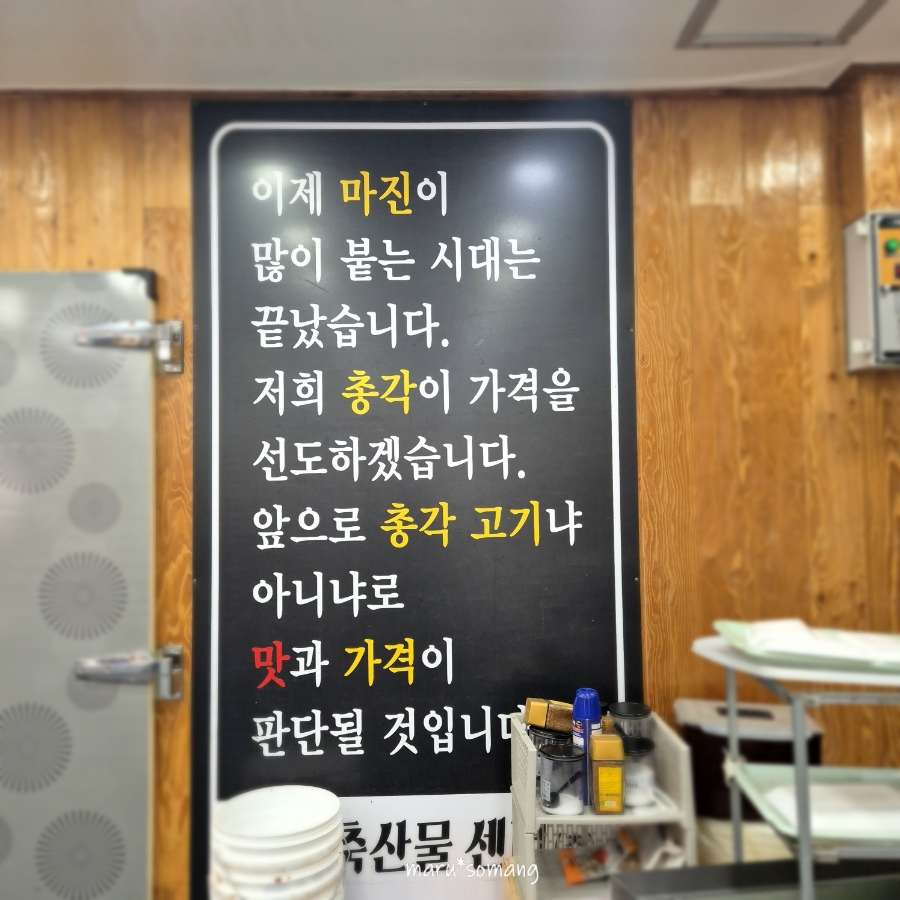 이제 마진이
많이 붙는 시대는
끝났습니다.
저희 총각이 가격을
선도하겠습니다.
앞으로 총각 고기냐
아니냐로
맛과 가격이
판단될 것입니다
축산물 센
maru*somang